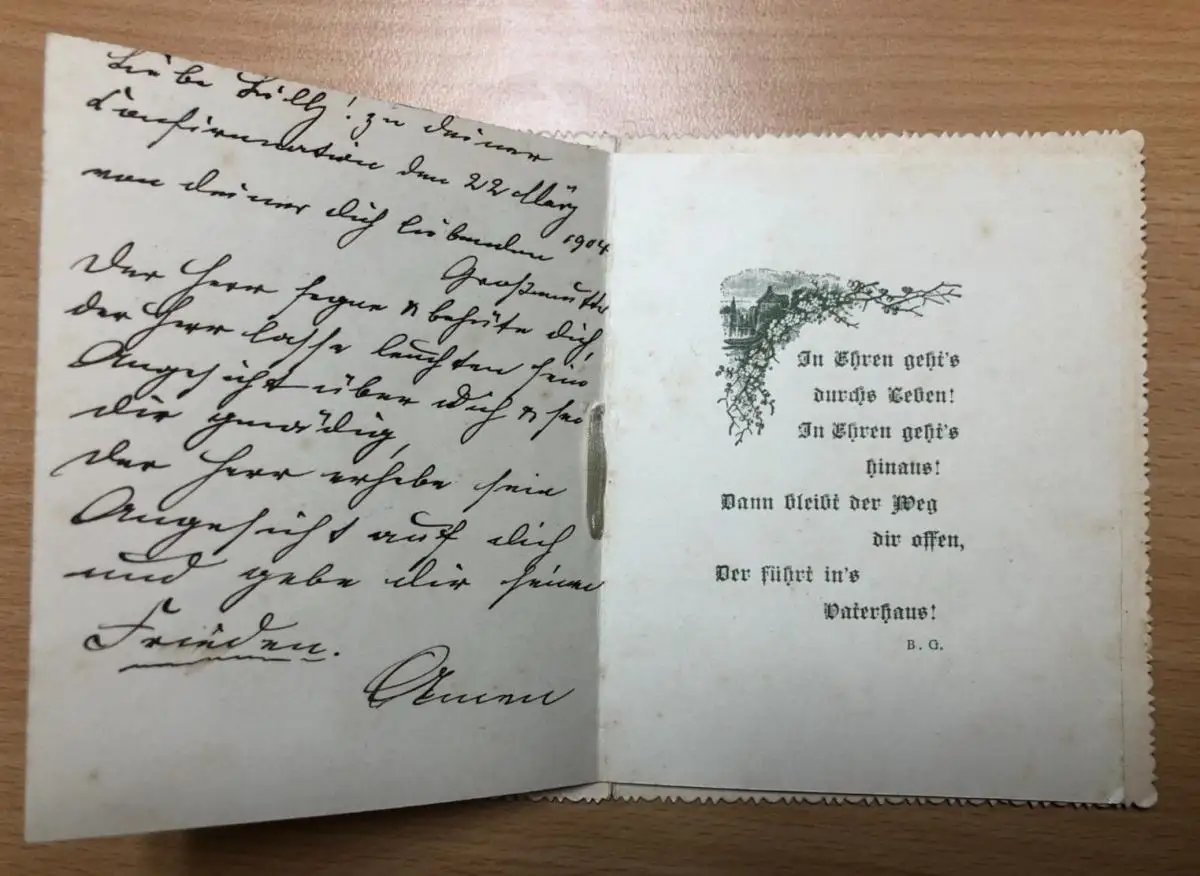 Liebe Lilly! zu deiner
Confirmation den 22 März
1904
von deiner dich liebenden
Großmutter
Der Herr segne & behüte dich,
der Herr lasse leuchten sein
Angesicht über dich & sei
dir gnädig,
der Herr erhebe sein
Angesicht auf dich
und gebe dir seinen
Frieden.
Amen
In Ehren geht's
durchs Leben!
In Ehren geht's
hinaus!
Dann bleibt der Weg
dir offen,
Der führt in's
Vaterhaus!
B. G.